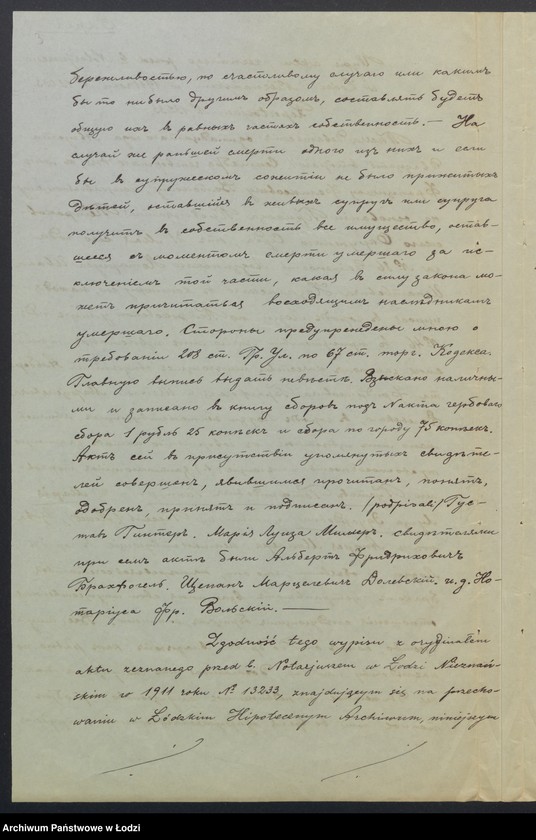 бережливостью, по счастливому случаю или какимъ
бы то нибыло другимъ образомъ, составлять будетъ
общую ихъ въ равныхъ частяхъ собственность. — На
случай же раньшей смерти одного изъ нихъ и если
бы въ супружескомъ сожитіи не было прижитыхъ
дѣтей, оставшійся въ живыхъ супругъ или супруга
получитъ въ собственность все имущество, остав-
шееся съ моментомъ смерти умершаго за ис-
ключеніемъ той части, какая въ силу закона мо-
жетъ причитаться восходящимъ наслѣдникамъ
умершаго. Стороны предупреждены мною о
требованіи 208 ст. Гр. Ул. по 67 ст. торг. Кодекса.
Главную выпись выдать невѣстѣ. Взыскано наличны-
ми и записано въ книгу сборовъ подъ № акта гербоваго
сбора 1 рубль 25 копѣек и сбора по городу 75 копѣекъ.
Актъ сей въ присутствіи упомянутыхъ свидѣте-
лей совершенъ, явившимся прочитанъ, понятъ,
одобренъ, принятъ и подписанъ. /podpisali/ Гус-
тавъ Гинтеръ. Марія Луиза Миллеръ. свидѣтелями
при семъ актѣ были Альбертъ Фридриховичъ
Брахфогель. Щепанъ Марцелевичъ Долевскій. и. д. Но-
таріуса Фр. Вольскій. —
Zgodność tego wypisu z oryginałem
aktu zeznanego przed b. Notarjuszem w Łodzi Nieznań-
skim w 1911 roku № 13233, znajdującym się na przecho-
waniu w Łódzkim Hipotecznym Archiwum, niniejszym
Archiwum Państwowe w Łodzi